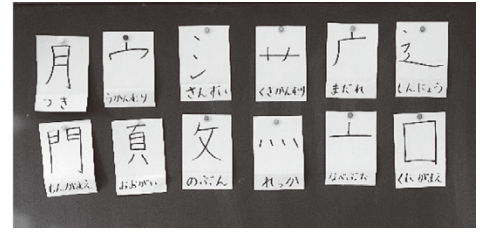 月
つき
宀
うかんむり
氵
さんずい
艹
くさかんむり
广
まだれ
辶
しんにょう
門
もんがまえ
頁
おおがい
攵
のぶん
灬
れっか
亠
なべぶた
囗
くにがまえ